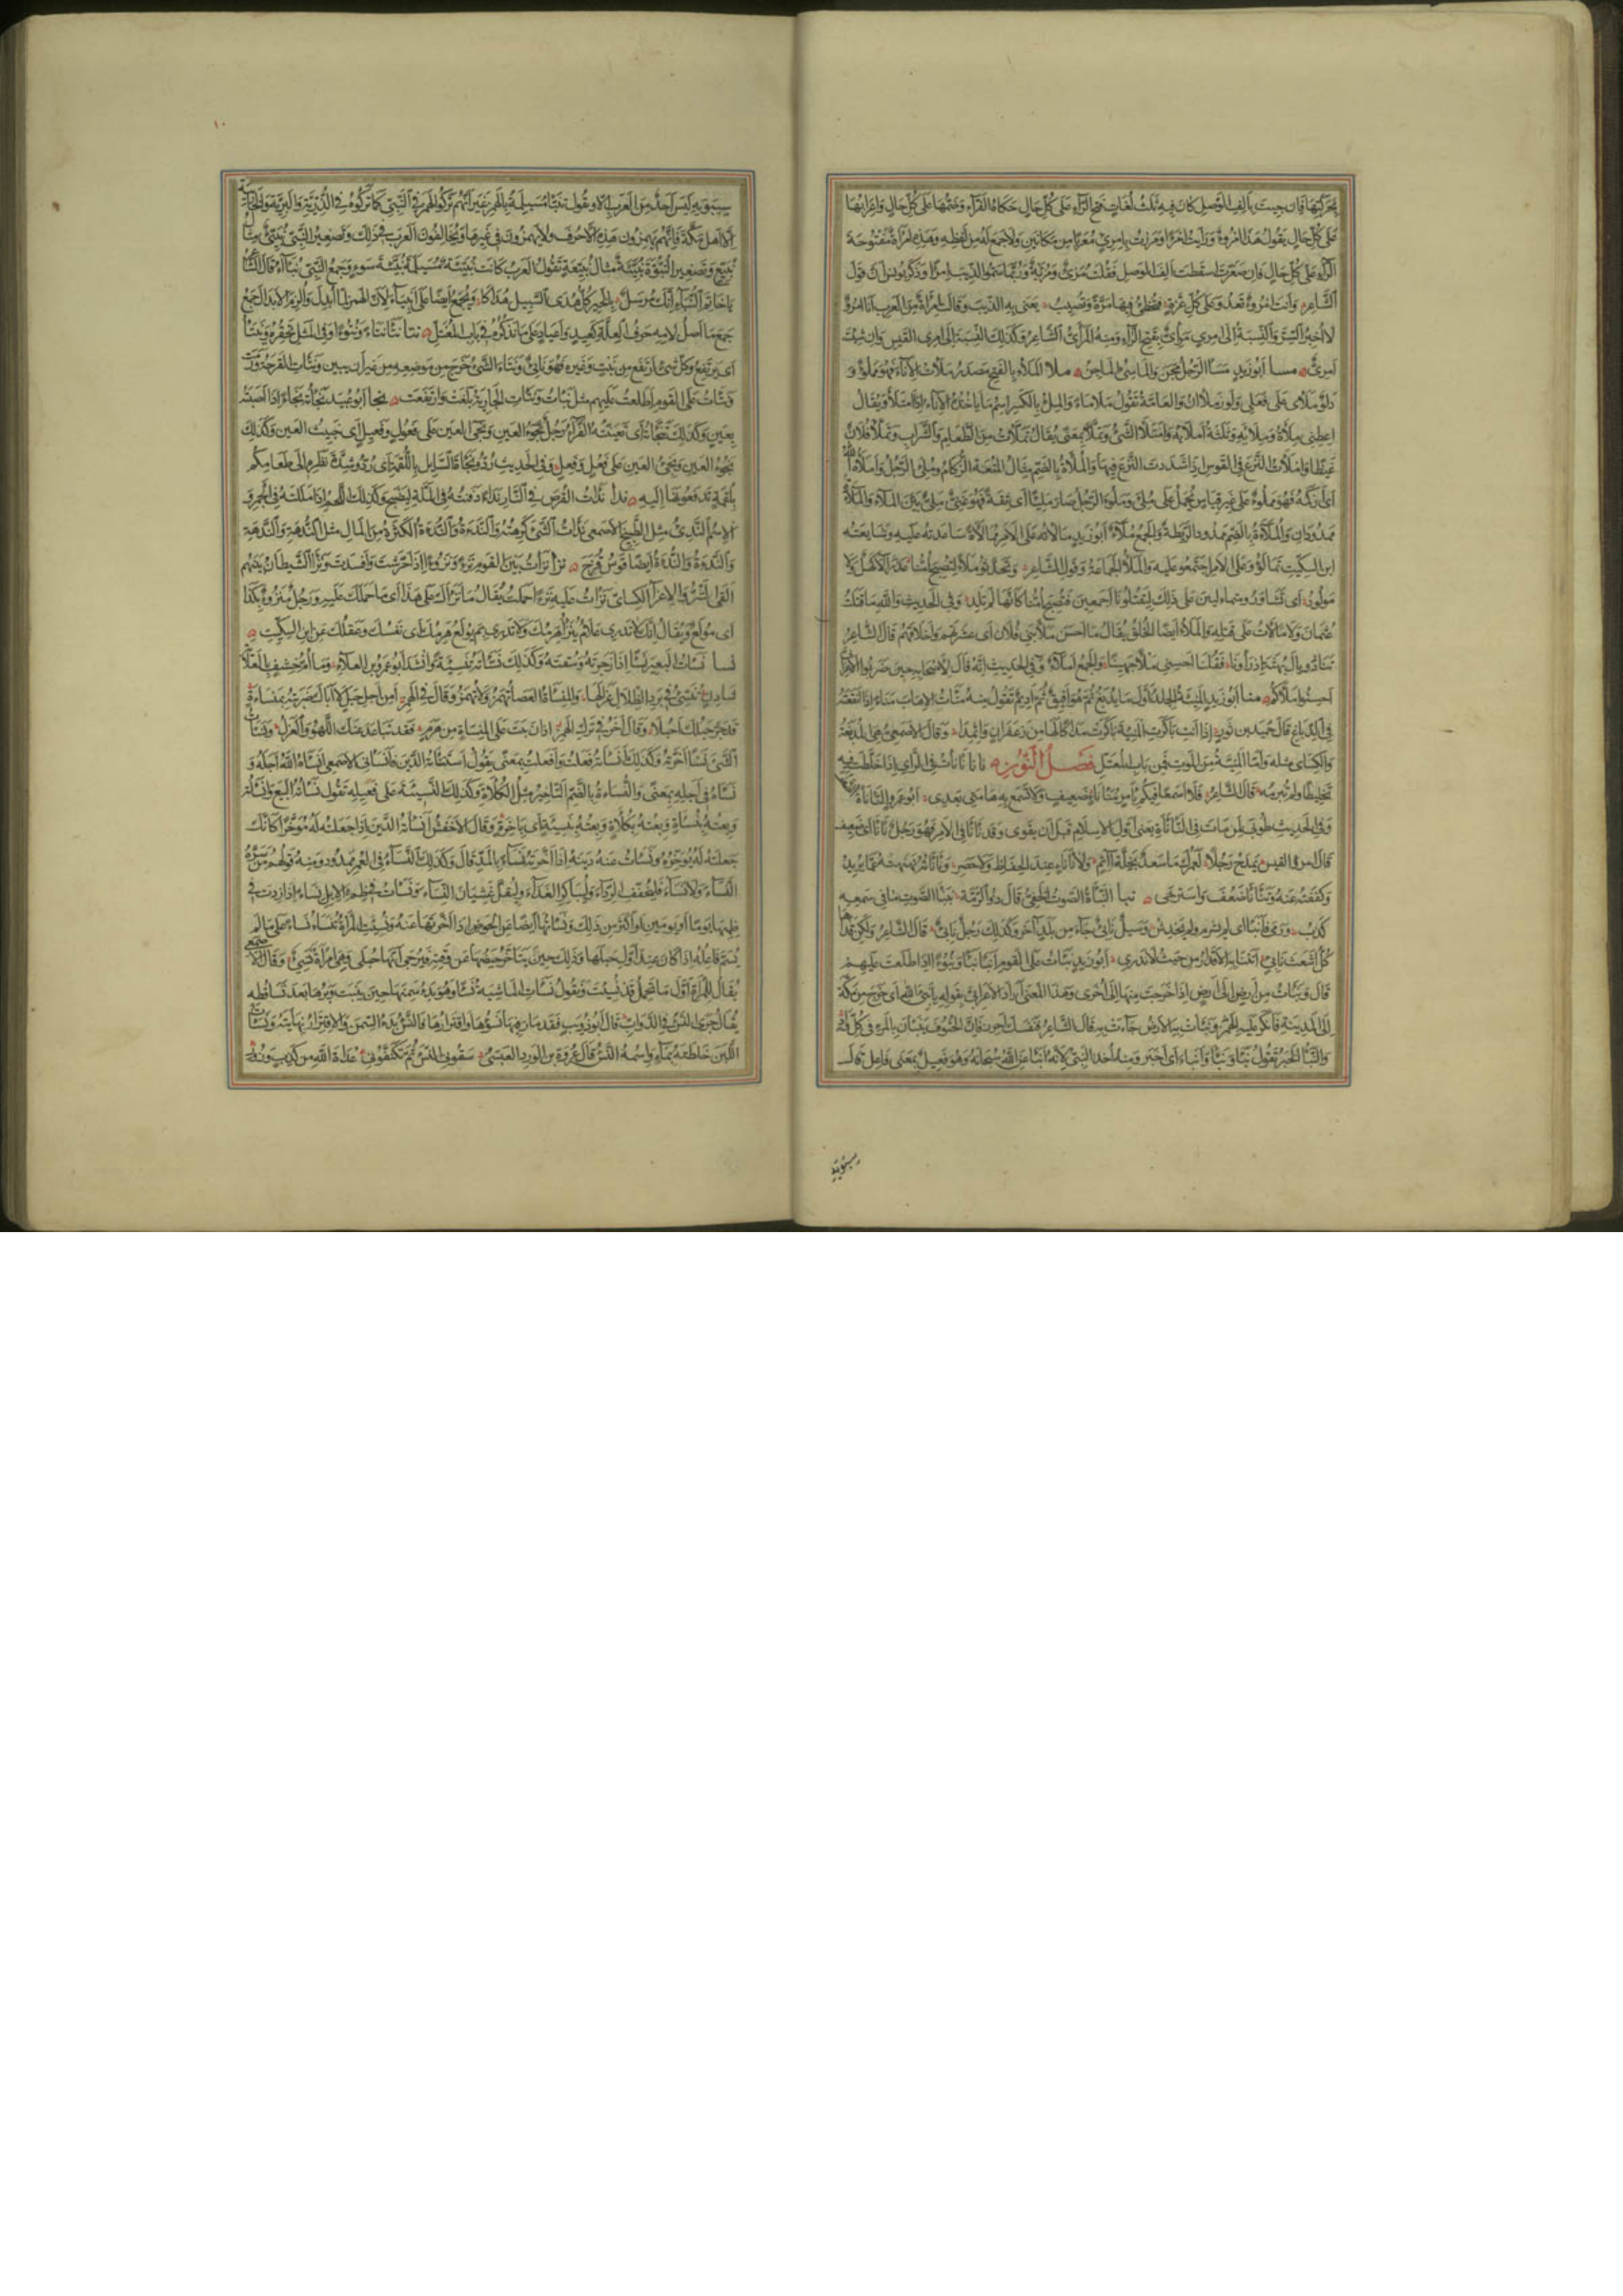 بتحريكها فان جيت بألف الوصل كان فيه ثلث لغات فتح الرآء على كل حال حكاها الفرآء وضمها على كل حال واعرابها
على كل حال يقول هذا امرؤ ورأيت امرأ ومررت بامرئ معربا من مكانين ولا جمع له من لفظه وهذه امرأة مفتوحة
الرآء على كل حال فان صغرت اسقطت الف الوصل فقلت مرئ ومريئة وربما سموا الذيب امرأ وذكر يونس ان قول
الشاعر وانت امرؤ تعدو على كل غرة فتخطئ فيها مرة وتصيب يعنى به الذيب وقالت امرأة من العرب انا امرؤ
لا اخبر السر والنسبة الى امرئ مرئي بفتح الرآء ومنه المرئي الشاعر وكذلك النسبة الى امرئ القيس وان شئت
امرئي مسا ابو زيد مسأ الرجل مجن والماسئ الماجن ملا الملء بالفتح مصدر ملأت الانآء فهو مملوء و
دلو ملأى على فعلى وكوز ملآن والعامة تقول ملا مآء والملء بالكسر اسم ما ياخذه الانآء اذا امتلأ ويقال
اعطنى ملأه وملأيه وثلثة املآئه وامتلأ الشئ وتملأ بمعنى يقال تملأت من الطعام والشراب وتملأ فلان
غيظا واملأت النزع فى القوس اذا شددت النزع فيها والملأة بالضم مثال المتعة الزكام وملئ الرجل واملأه الله
اى ازكمه فهو مملوء على غير قياس يحمل على ملئ وملؤ الرجل صار مليئا اى ثقة فهو غنى ملئ بين الملآء والملآءة
ممدودان والملآءة بالضم ممدود الريطة والجمع ملآء ابو زيد مالأته على الامر ممالأة ساعدته عليه وشايعته
ابن السكيت تمالؤوا على الامر اجتمعوا عليه والملأ الجماعة وقول الشاعر وتحدثوا ملأ لتصبح امنا عذرآء لا كهل ولا
مولود اى تشاوروا متمالئين على ذلك ليقتلونا اجمعين فتصبح امنا كانها لم تلد وفى الحديث والله ما قتلت
عثمان ولا مالأت على قتله والملأ ايضا الخلق يقال ما احسن ملأ بنى فلان اى عشرتهم واخلاقهم قال الشاعر
تنادوا يال بهثة اذ رأونا فقلنا احسنى ملأ جهينا والجمع املآء وفى الحديث انه قال لاصحابه حين ضربوا الاعرابى
احسنوا املآءكم منأ ابو زيد المنيئة الجلد اول ما يدبغ ثم هو افيق ثم اديم تقول منه منأت الاهاب منأ اذا انقعته
فى الدباغ قال حميد بن ثور اذا انت باكرت المنيئة باكرت مداكا لها من زعفران واثمدا وقال الاصمعى هى المدبغة
والكسائى مثله واما المنية من الموت فمن باب المعتل فصل النون نانا نأنأت فى الراى اذا خلطت فيه
تخليطا ولم تبرمه قال الشاعر فلا اسمعن فيكم بامر منأنأ ضعيف ولا تسمع به هامتى بعدى ابو عمرو النأنأة الضعف
وفى الحديث طوبى لمن مات فى النأنأة يعنى اول الاسلام قبل ان يقوى وقد نأنأ فى الامر فهو رجل نأنأ اى ضعيف
قال امرؤ القيس يمدح رجلا لعمرك ما سعد بخلة آثم ولا نأنأ عند الحفاظ ولا حصر ونأنأته نهنهته عما يريد
وكففته عنه وتنأنأ ضعف واسترخى نبأ النبأة الصوت الخفى قال ذو الرمة بنبأة الصوت ما فى سمعه
كذب ورمى فانبأ اى لم يشرم ولم يخدش وسيل نابئ جآء من بلد آخر وكذلك رجل نابئ قال الشاعر ولكن قذاها
كل اشعث نابئ اتتنا به الاقدار من حيث لا ندرى ابو زيد نبأت على القوم انبأ نبأ ونبوءا اذا طلعت عليهم
قال ونبأت من ارض الى ارض اذا خرجت منها الى اخرى وهذا المعنى اراد الاعرابى بقوله يا نبئ الله اى خرج من مكة
الى المدينة فانكر عليه الهمز ونبأت به الارض جآءت به قال الشاعر فنفسك احرز فان الحتوف ينبأن بالمرء فى كل واد
والنبأ الخبر تقول نبأ ونبّأ وانبأ اى اخبر ومنه اخذ النبئ لانه انبأ عن الله سبحانه وهو فعيل بمعنى فاعل قال
سيبويه
١٠
سيبويه ليس احد من العرب الا ويقول تنبأ مسيلمة بالهمز غير انهم تركوا الهمز فى النبى كما تركوه فى الذرية والبرية والخابية
الا اهل مكة فانهم يهمزون هذه الاحرف ولا يهمزون فى غيرها ويخالفون العرب فى ذلك وتصغير النبئ نبيئ مثال
نبيع وتصغير النبوءة نبيئة مثال نبيعة تقول العرب كانت نبيئة مسيلمة نبيئة سوء وجمع النبئ نبآء قال الشاعر
يا خاتم النبآء انك مرسل بالخير كل هدى السبيل هداكا ويجمع ايضا على انبيآء لان الهمز لما ابدل والزم الابدال جمع
جمع ما اصل لامه حرف العلة كعيد واعياد على ما نذكره فى باب المعتل نتأ نتأ نتأ ونتوءا وفى المثل تحقره وينتأ
اى يرتفع وكل شئ ارتفع من نبت وغيره فهو ناتئ ونتأ الشئ خرج من موضعه من غير ان يبين ونتأت القرحة ورمت
ونتأت على القوم اطلعت عليهم مثل نبأت ونتأت الجارية بلغت وارتفعت نجأ ابو عبيد نجأته نجأ اذا اصبته
بعين وكذلك تنجأته اى تعينته الفرآء رجل نجوء العين ونجئ العين على فعول وفعيل اى خبيث العين وكذلك
نجؤ العين ونجئ العين على فعل وفعل وفى الحديث ردوا نجأة السائل باللقمة اى ردوا شدة نظره الى طعامكم
بلقمة تدفعونها اليه ندأ ندأت القرص فى النار ندأ دفنته فى الملة لينضج وكذلك اللحم اذا مللته فى الجمر و
الاسم الندئ مثل الطبيخ الاصمعى ندأت الشئ كرهته والندأة والندأة الكثرة من المال مثل الندهة والندهة
والندأة والندأة ايضا قوس قزح نزأ نزأت بين القوم نزءا ونزوءا اذا حرشت وافسدت ونزأ الشيطان بينهم
القى الشر والاغرآء الكسائى نزأت عليه نزءا حملت يقال ما نزأك على هذا اى ما حملك عليه ورجل منزوء بكذا
اى مولع ويقال انك لا تدرى علام ينزأ هرمك ولا تدرى بم يولع هرمك اى نفسك وعقلك عن ابن السكيت
نسأ نسأت البعير نسأ اذا زجرته وسقته وكذلك نسأته تنسئة وانشد ابو عمرو بن العلآء وما ام خشف بالعلاية
شادن تنسئ فى برد الظلال غزالها والمنسأة العصا تهمز ولا تهمز وقال فى الهمز امن اجل حبل لا اباك ضربته بمنسأة
قد جر حبلك احبلا وقال آخر فى ترك الهمز اذا دببت على المنساة من هرم فقد تباعد عنك اللهو والغزل ونسأت
الشئ نسأ اخرته وكذلك انسأته فعلت وافعلت بمعنى يقول استنسأته الدين فانسأنى الاصمعى انسأه الله اجله و
نسأه فى اجله بمعنى والنسأة بالضم التاخير مثل الكلأة وكذلك النسيئة على فعيلة تقول نسأته البيع وانسأته
وبعته بنسأة وبعته بكلأة وبعته بنسيئة اى باخرة وقال الاخفش انسأته الدين اذا جعلته له مؤخرا كانك
جعلته له يؤخره ونسأت عنه دينه اذا اخرته نسآء بالمد قال وكذلك النسآء فى العمر ممدود ومنه قولهم من سره
النسآء ولا نسآء فليخفف الردآء وليباكر الغدآء وليقل غشيان النسآء ونسأت فى ظمء الابل نسأ اذا زدت فى
ظمئها يوما او يومين او اكثر من ذلك ونسأتها ايضا عن الحوض اذا اخرتها عنه ونسئت المرأة تنسأ نسأ على ما لم
يسم فاعله اذا كان عند اول حبلها وذلك حين يتأخر حيضها عن وقته فيرجى انها حبلى فهى امرأة نسئ وقال الاصمعى
يقال للمرأة اول ما تحمل قد نسئت وتقول نسأت الماشية نسأ وهو بدء سمنها حين ينبت وبرها بعد تساقطه
يقال جرى النسء فى الدواب قال ابو ذؤيب فقد مار فيها نسؤها واقترارها فالنسء بدء السمن والاقترار نهايته ونسأت
اللبن خلطته بمآء واسمه النسء قال عروة بن الورد العبسى سقونى النسء ثم تكنفونى عداة الله من كذب وزور